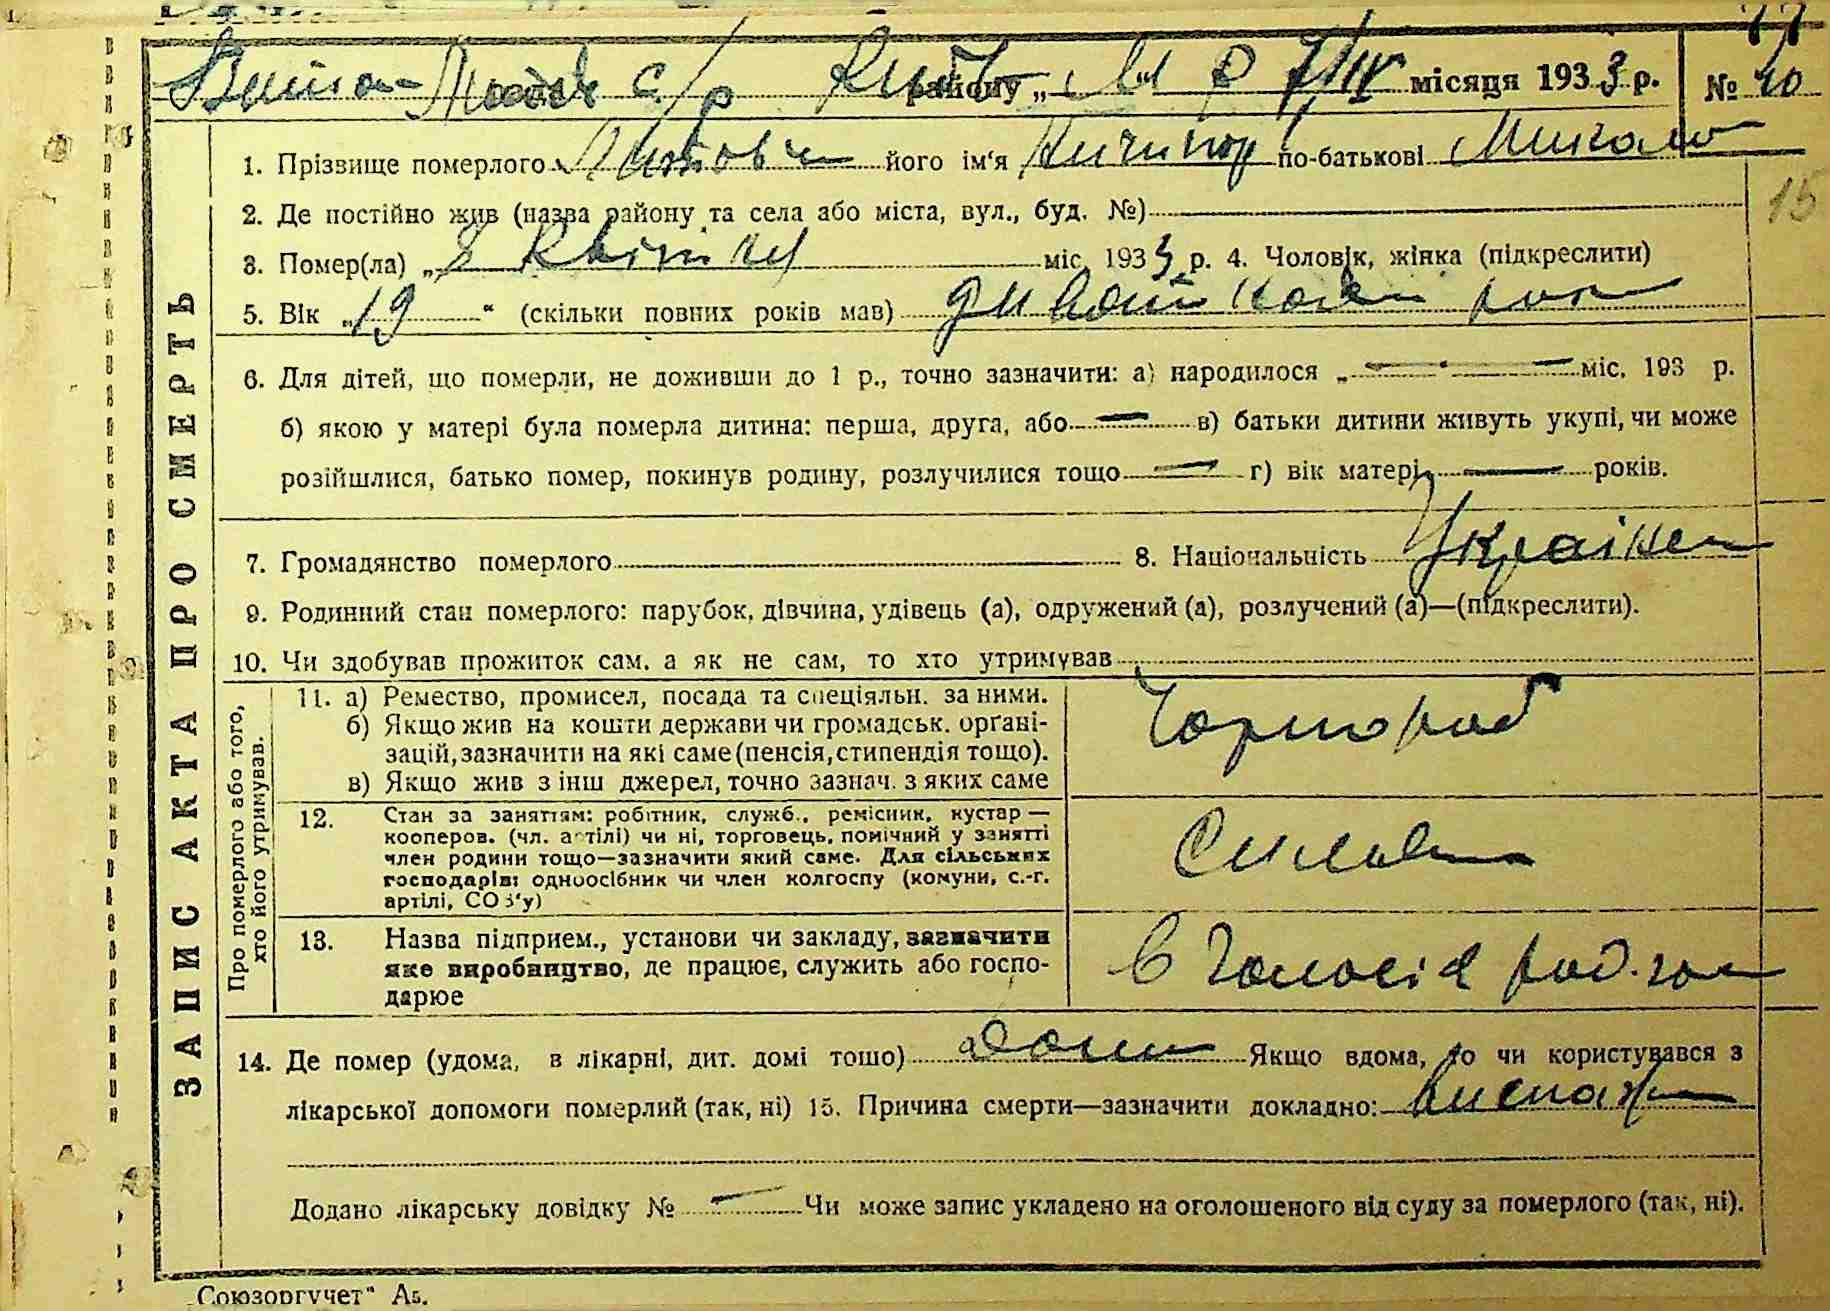 с/р району „ місяця 1933 р. № 
1. Прізвище померлого його ім'я Ничипор по-батькові
2. Де постійно жив (назва району та села або міста, вул., буд. №)
3. Помер(ла) „8 Квітня міс. 1933 р. 4. Чоловік, жінка (підкреслити)
5. Вік „19 “ (скільки повних років мав)
6. Для дітей, що померли, не доживши до 1 р., точно зазначити: а) народилося „ — — міс. 193 р.
б) якою у матері була померла дитина: перша, друга, або — в) батьки дитини живуть укупі, чи може
розійшлися, батько помер, покинув родину, розлучилися тощо — г) вік матері — років.
7. Громадянство померлого — 8. Національність Українець
9. Родинний стан померлого: парубок, дівчина, удівець (а), одружений (а), розлучений (а)—(підкреслити).
10. Чи здобував прожиток сам, а як не сам, то хто утримував
11. а) Ремество, промисел, посада та спеціяльн. за ними.
б) Якщо жив на кошти держави чи громадськ. орґані-
зацій, зазначити на які саме (пенсія, стипендія тощо).
в) Якщо жив з інш джерел, точно зазнач. з яких саме
Чорнороб
12. Стан за заняттям: робітник, служб., ремісник, кустар —
кооперов. (чл. артілі) чи ні, торговець, помічний у занятті
член родини тощо—зазначити який саме. Для сільських
господарів: одноосібник чи член колгоспу (комуни, с.-г.
артілі, СОЗ'у)
13. Назва підприєм., установи чи закладу, зазначити
яке виробництво, де працює, служить або госпо-
дарює
14. Де помер (удома, в лікарні, дит. домі тощо) Дома Якщо вдома, то чи користувався з
лікарської допомоги померлий (так, ні) 15. Причина смерти—зазначити докладно:
Додано лікарську довідку № — Чи може запис укладено на оголошеного від суду за померлого (так, ні).
ЗАПИС АКТА ПРО СМЕРТЬ
Про померлого або того,
хто його утримував.
15
„Союзоргучет“ А5.